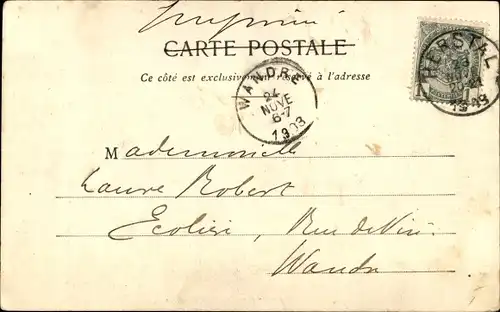 Imprimé
CARTE POSTALE
Ce côté est exclusivement réservé à l'adresse
HERSTAL
1903
WANDRE
24
NOVE
6-7
1903
Mademoiselle
Laure Robert
Ecolière, Rue de
Wandre